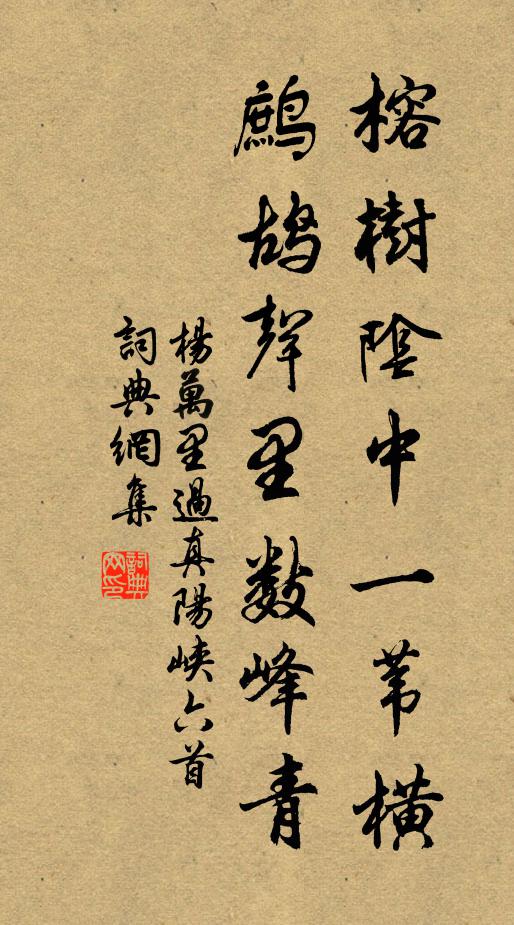 榕樹陰中一葦橫
鷓鴣聲里數峰青
楊萬里過真陽峽六首
詞典網集
詞典網印